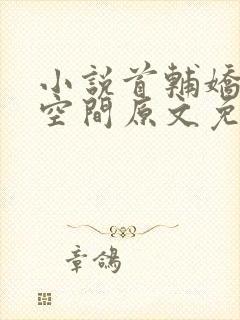 小說首輔嬌
空間原文免
章鴿